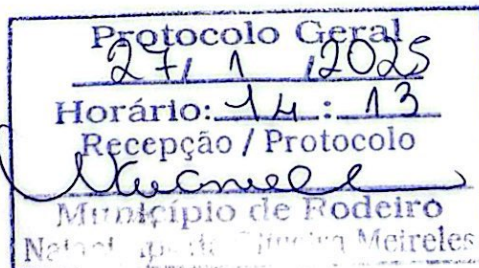 Protocolo Geral
27/ 1 /2025
Horário: 14 : 13
Recepção / Protocolo
Município de Rodeiro
Meireles